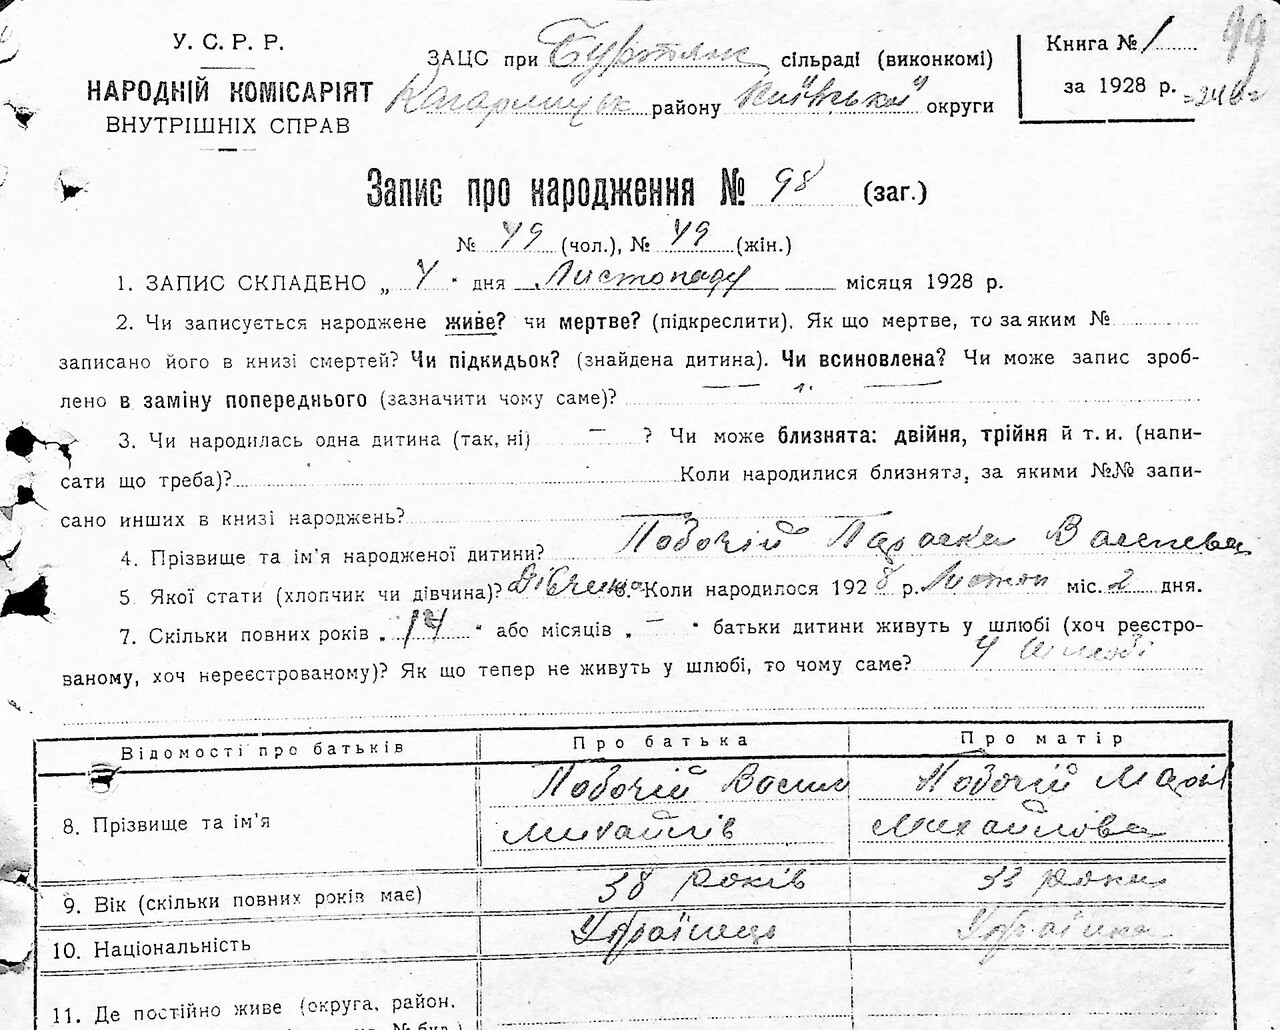 У. С. Р. Р.
НАРОДНІЙ КОМІСАРІЯТ
ВНУТРІШНІХ СПРАВ
ЗАЦС при сільраді (виконкомі)
Кагарлицьк району Київської округи
Книга № 1
за 1928 р.
99
=246=
Запис про народження № 98 (заг.)
№ 49 (чол.), № 49 (жін.)
1. ЗАПИС СКЛАДЕНО „ 4 “ дня Листопаду місяця 1928 р.
2. Чи записується народжене живе? чи мертве? (підкреслити). Як що мертве, то за яким №
записано його в книзі смертей? Чи підкидьок? (знайдена дитина). Чи всиновлена? Чи може запис зроб-
лено в заміну попереднього (зазначити чому саме)?
3. Чи народилась одна дитина (так, ні) — ? Чи може близнята: двійня, трійня й т. и. (напи-
сати що треба)? Коли народилися близнята, за якими №№ запи-
сано инших в книзі народжень?
4. Прізвище та ім'я народженої дитини? Побочій Параска Василівна
5. Якої стати (хлопчик чи дівчина)? Дівчина 6. Коли народилося 1928 р. Листоп міс. 2 дня.
7. Скільки повних років „ 14 “ або місяців „ — “ батьки дитини живуть у шлюбі (хоч реєстро-
ваному, хоч нереєстрованому)? Як що тепер не живуть у шлюбі, то чому саме? У шлюбі
Відомості про батьків Про батька Про матір
8. Прізвище та ім'я Побочій Василь Михайлів Побочій Марія Михайлова
9. Вік (скільки повних років має) 38 років 33 роки
10. Національність Українець Українка
11. Де постійно живе (округа, район,
№ буд.)